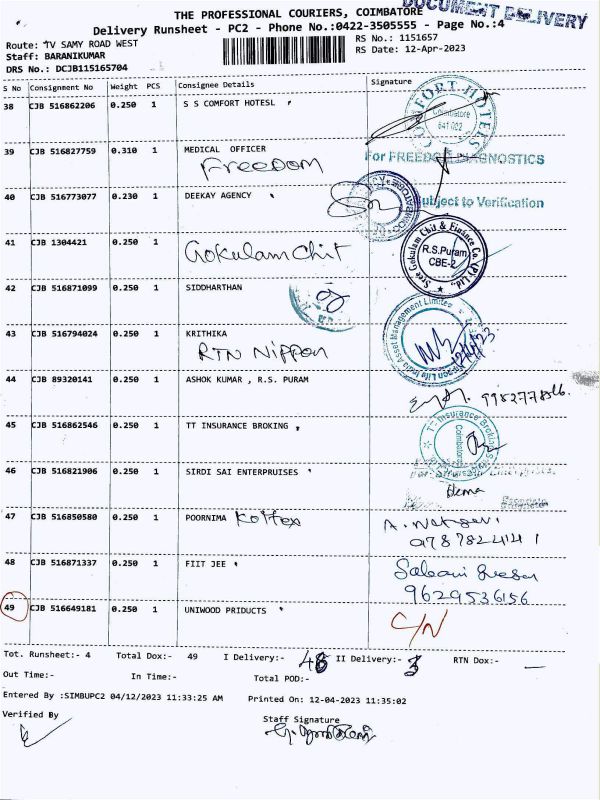 DOCUMENT DELIVERY
THE PROFESSIONAL COURIERS, COIMBATORE
Delivery Runsheet - PC2 - Phone No.:0422-3505555 - Page No.:4
Route: TV SAMY ROAD WEST RS No.: 1151657
Staff: BARANIKUMAR RS Date: 12-Apr-2023
DRS No.: DCJB115165704
S No Consignment No Weight PCS Consignee Details Signature
38 CJB 516862206 0.250 1 S S COMFORT HOTESL
COMFORT HOTELS
Coimbatore
39 CJB 516827759 0.310 1 MEDICAL OFFICER
Freedom For FREEDOM DIAGNOSTICS
40 CJB 516773077 0.230 1 DEEKAY AGENCY Subject to Verification
41 CJB 1304421 0.250 1 Gokulam Chit
Sree Gokulam Chit & Finance Co. (P) Ltd.,
R.S.Puram
CBE-2
42 CJB 516871099 0.250 1 SIDDHARTHAN
43 CJB 516794024 0.250 1 KRITHIKA
RTN Nippon
Nippon Life India Asset Management Limited
44 CJB 89320141 0.250 1 ASHOK KUMAR , R.S. PURAM
45 CJB 516862546 0.250 1 TT INSURANCE BROKING
TT Insurance Broking
Coimbatore
46 CJB 516821906 0.250 1 SIRDI SAI ENTERPRUISES
Hema
47 CJB 516850580 0.250 1 POORNIMA
9787822141
48 CJB 516871337 0.250 1 FIIT JEE
9629536156
49 CJB 516649181 0.250 1 UNIWOOD PRIDUCTS C/N
Tot. Runsheet:- 4 Total Dox:- 49 I Delivery:- II Delivery:- RTN Dox:- —
Out Time:- In Time:- Total POD:-
Entered By :SIMBUPC2 04/12/2023 11:33:25 AM Printed On: 12-04-2023 11:35:02
Verified By Staff Signature